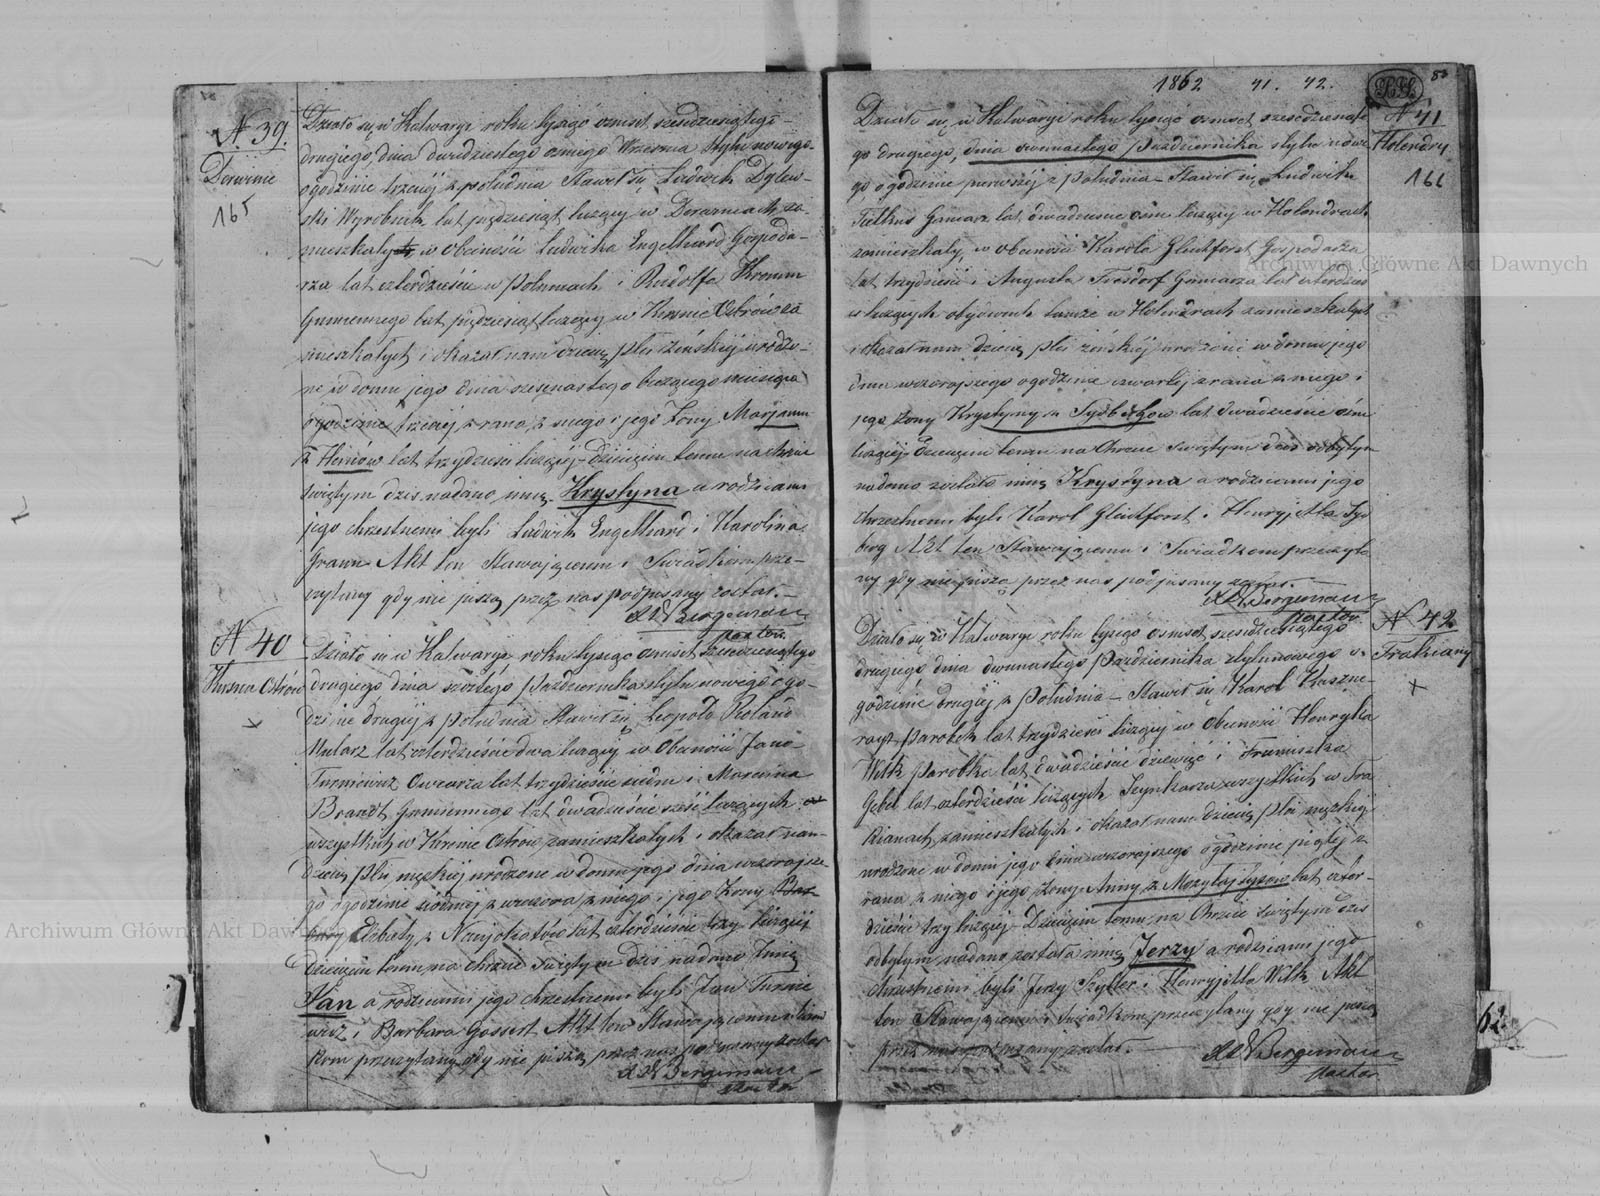 N. 39.
Derwinie
165
Działo się w Kalwaryi roku tysiąc osmset sześdziesiątego
drugiego, dnia dwudziestego osmego Września stylu nowego
o godzinie trzeciej z południa Stawił się Ludwik
Wyrobnik lat pięćdziesiąt liczący w za-
mieszkały w obecności Ludwika Engelhard Gospoda-
rza lat czterdzieście w i Rudolfa
Gumiennego lat pięćdziesiąt liczący w Kirsnie Ostrów za
mieszkałych i okazał nam dziecię płci żeńskiej urodzo-
ne w domu jego dnia szesnastego bieżącego miesiąca
o godzinie trzeciej z rana, z niego i jego Żony Marjanny
z lat trzydzieści liczącej Dziecięciu temu na chrzcie
świętym dziś nadano imię Krystyna a rodzicami
jego chrzestnemi byli Ludwik Engelhard i Karolina
Akt ten Stawającemu i Świadkom prze-
czytany gdy nie piszą przez nas podpisany został.
Bergemann
pastor
N 40
Kirsna Ostrów
Działo się w Kalwaryi, roku tysiąc osmset sześdziesiątego
drugiego dnia szóstego Października stylu nowego o go-
dzinie drugiej z południa Stawił się Leopold Roland
Mularz lat czterdzieście dwa liczący w Obecności Jana
Turowicz Owczarza lat trzydzieście siedm i Marcina
Brandt Gumiennego lat dwadzieście sześć liczących
wszystkich w Kirsnie Ostrów zamieszkałych i okazał nam
Dziecię płci męskiej urodzone w domu jego dnia wczorajsze-
go o godzinie siódmej z wieczora z niego i jego Żony
Elżbiety z lat czterdzieście trzy liczącej
Dziecięciu temu na chrzcie świętym dziś nadano Imię
Jan a rodzicami jego chrzestnemi byli Jan
i Barbara Gossert Akt ten Stawającemu i świad
kom przeczytany gdy nie piszą przez nas podpisany został
Bergemann
pastor
1862 41. 42.
N 41
Holendry
166
Działo się w Kalwaryi roku tysiąc osmset sześćdziesiąte
go drugiego, dnia dwunastego Października stylu nowe
go, o godzinie pierwszej z Południa Stawił się Ludwik
lat dwadzieście osm liczący w Holendrach
zamieszkały, w obecności Karola Gleitforst Gospodarza
lat trzydzieści i Augusta lat czterdzieś
ci liczących obydwóch tamże w Holendrach zamieszkałych
i okazał nam dziecię płci żeńskiej urodzone w domu jego
dnia wczorajszego o godzinie czwartej z rana z niego i
jego żony Krystyny z lat dwadzieście osm
liczącej Dziecięciu temu na Chrzcie świętym dziś odbytym
nadano zostało imię Krystyna a rodzicami jego
chrzestnemi byli Karol Gleitforst i Henryjetta
Akt ten Stawającemu i Świadkom przeczyta
ny gdy nie piszą przez nas podpisany został.
Bergemann
pastor
N 42
Trakiany
Działo się w Kalwaryi roku tysiąc osmset sześdziesiątego
drugiego, dnia dwunastego Października stylu nowego o
godzinie drugiej z Południa Stawił się Karol
Parobek lat trzydzieści liczący w Obecności Henryka
Wilk Parobka lat dwadzieście dziewięć i Franciszka
Gebel lat czterdzieści liczących Szynkarza wszystkich w Tra
kianach zamieszkałych i okazał nam dziecię płci męskiej
urodzone w domu jego dnia wczorajszego o godzinie piątej z
rana z niego i jego żony Anny z lat czter-
dzieście trzy liczącej Dziecięciu temu na Chrzcie świętym dziś
odbytym nadano zostało imię Jerzy a rodzicami jego
chrzestnemi byli Jerzy i Henryjetta Wilk Akt
ten Stawającemu i Świadkom przeczytany gdy nie piszą
przez nas podpisany został.
Bergemann
pastor
62
Archiwum Główne Akt Dawnych
Archiwum Główne Akt Dawnych